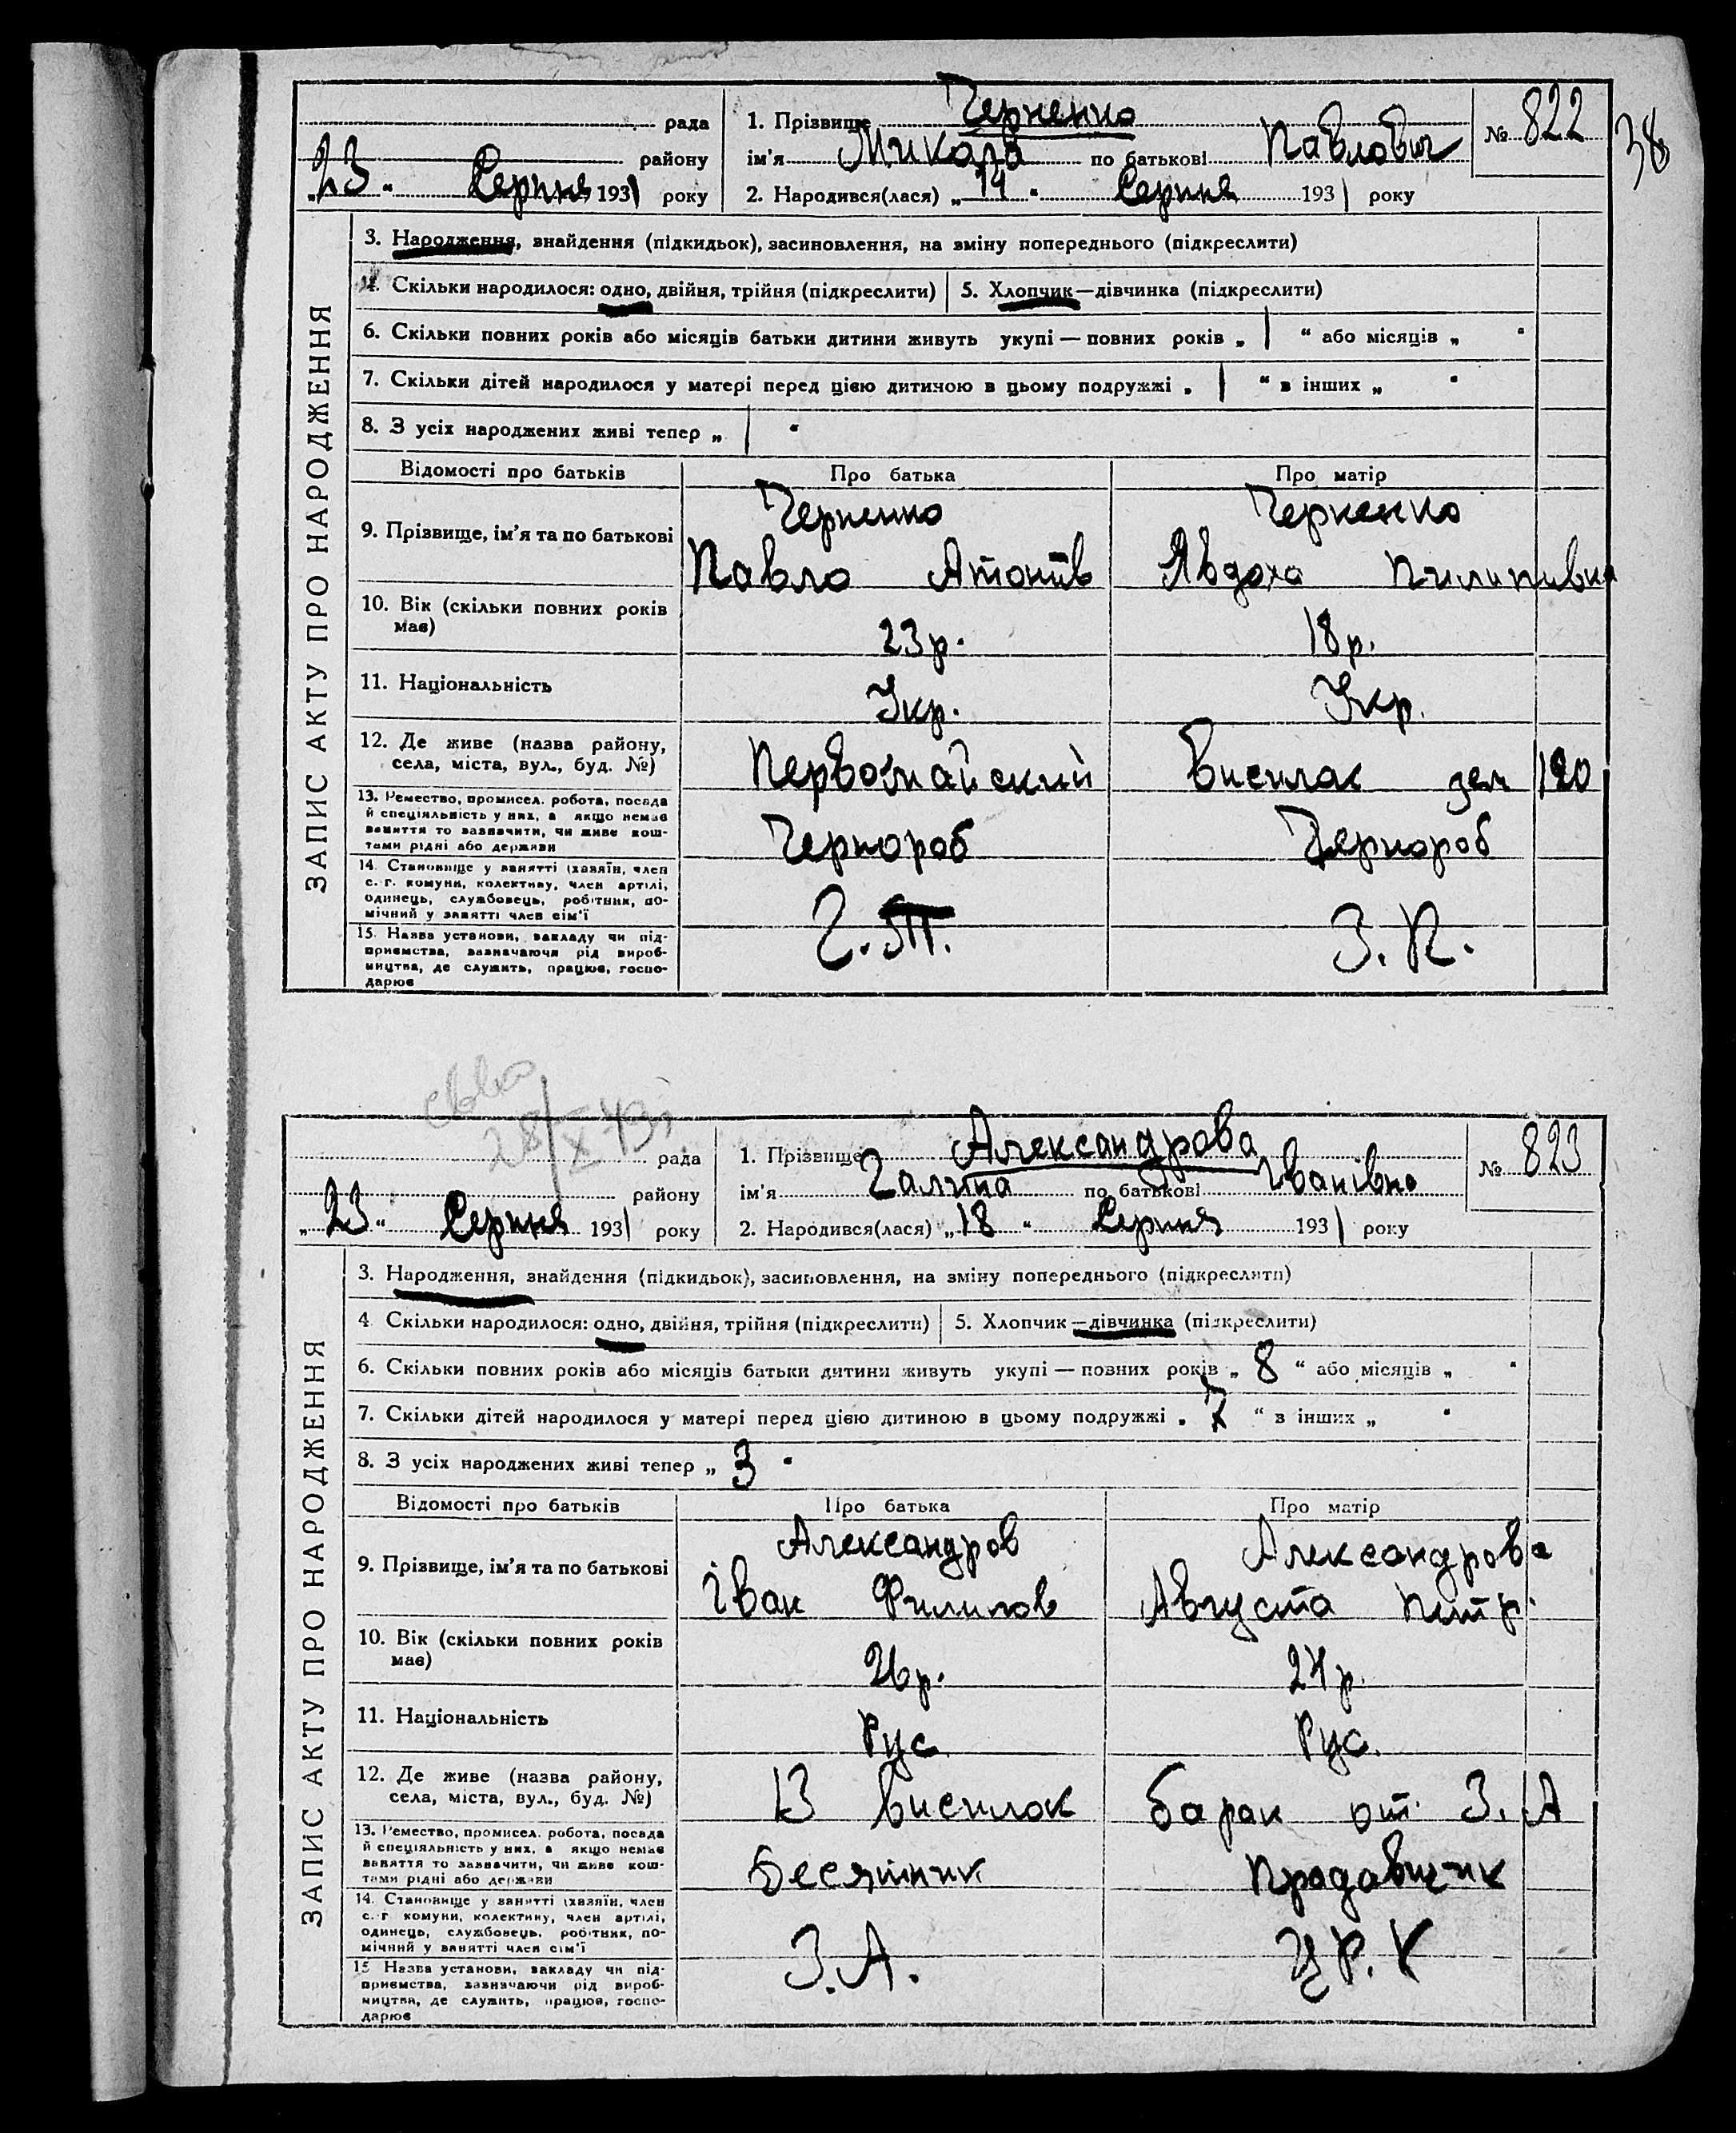 38
рада
району
„23“ Серпня 1931 року
1. Прізвище Черненко
ім'я Микола по батькові Павлович
2. Народився(лася) „14“ Серпня 1931 року
№ 822
ЗАПИС АКТУ ПРО НАРОДЖЕННЯ
3. Народження, знайдення (підкидьок), засиновлення, на зміну попереднього (підкреслити)
4. Скільки народилося: одно, двійня, трійня (підкреслити) 5. Хлопчик—дівчинка (підкреслити)
6. Скільки повних років або місяців батьки дитини живуть укупі — повних років „ 1 “ або місяців „ “
7. Скільки дітей народилося у матері перед цією дитиною в цьому подружжі „ 1 “ в інших „ “
8. З усіх народжених живі тепер „ 1 “
Відомості про батьків Про батька Про матір
9. Прізвище, ім'я та по батькові
Черненко Черненко
Павло Атонів Явдоха Пилипивна
10. Вік (скільки повних років має) 23р. 18р.
11. Національність Укр. Укр.
12. Де живе (назва району, села, міста, вул., буд. №)
Первомайский висилак зем 120
13. Ремество, промисел. робота, посада й спеціяльність у них, а якщо немає заняття то зазначити, чи живе коштами рідні або держави
Чернороб Чернороб
14. Становище у занятті (хазяїн, член с. г. комуни, колективу, член артілі, одинець, службовець, робітник, помічний у занятті член сім'ї
15. Назва установи, закладу чи підприємства, зазначаючи рід виробництва, де служить, працює, господарює
З. П.
28/X 43
рада
району
„23“ Серпня 1931 року
1. Прізвище Александрова
ім'я Галина по батькові Іванівна
2. Народився(лася) „18“ Серпня 1931 року
№ 823
ЗАПИС АКТУ ПРО НАРОДЖЕННЯ
3. Народження, знайдення (підкидьок), засиновлення, на зміну попереднього (підкреслити)
4 Скільки народилося: одно, двійня, трійня (підкреслити) 5. Хлопчик—дівчинка (підкреслити)
6. Скільки повних років або місяців батьки дитини живуть укупі — повних років „ 8 “ або місяців „ “
7. Скільки дітей народилося у матері перед цією дитиною в цьому подружжі „ “ в інших „ “
8. З усіх народжених живі тепер „ 3 “
Відомості про батьків Про батька Про матір
9. Прізвище, ім'я та по батькові
Александров Александрова
Іван Филипов Августа Петр.
10. Вік (скільки повних років має) 26р. 24р.
11. Національність Рус Рус.
12. Де живе (назва району, села, міста, вул., буд. №)
13 висилок барак от. З. А
13. Ремество, промисел. робота, посада й спеціяльність у них, а якщо немає заняття то зазначити, чи живе коштами рідні або держави
Десятник Продавщик
14. Становище у занятті (хазяїн, член с. г комуни, колективу, член артілі, одинець, службовець, робітник, помічний у занятті член сім'ї
15 Назва установи, закладу чи підприємства, зазначаючи рід виробництва, де служить, працює, господарює
З. А. Ц. Р. К